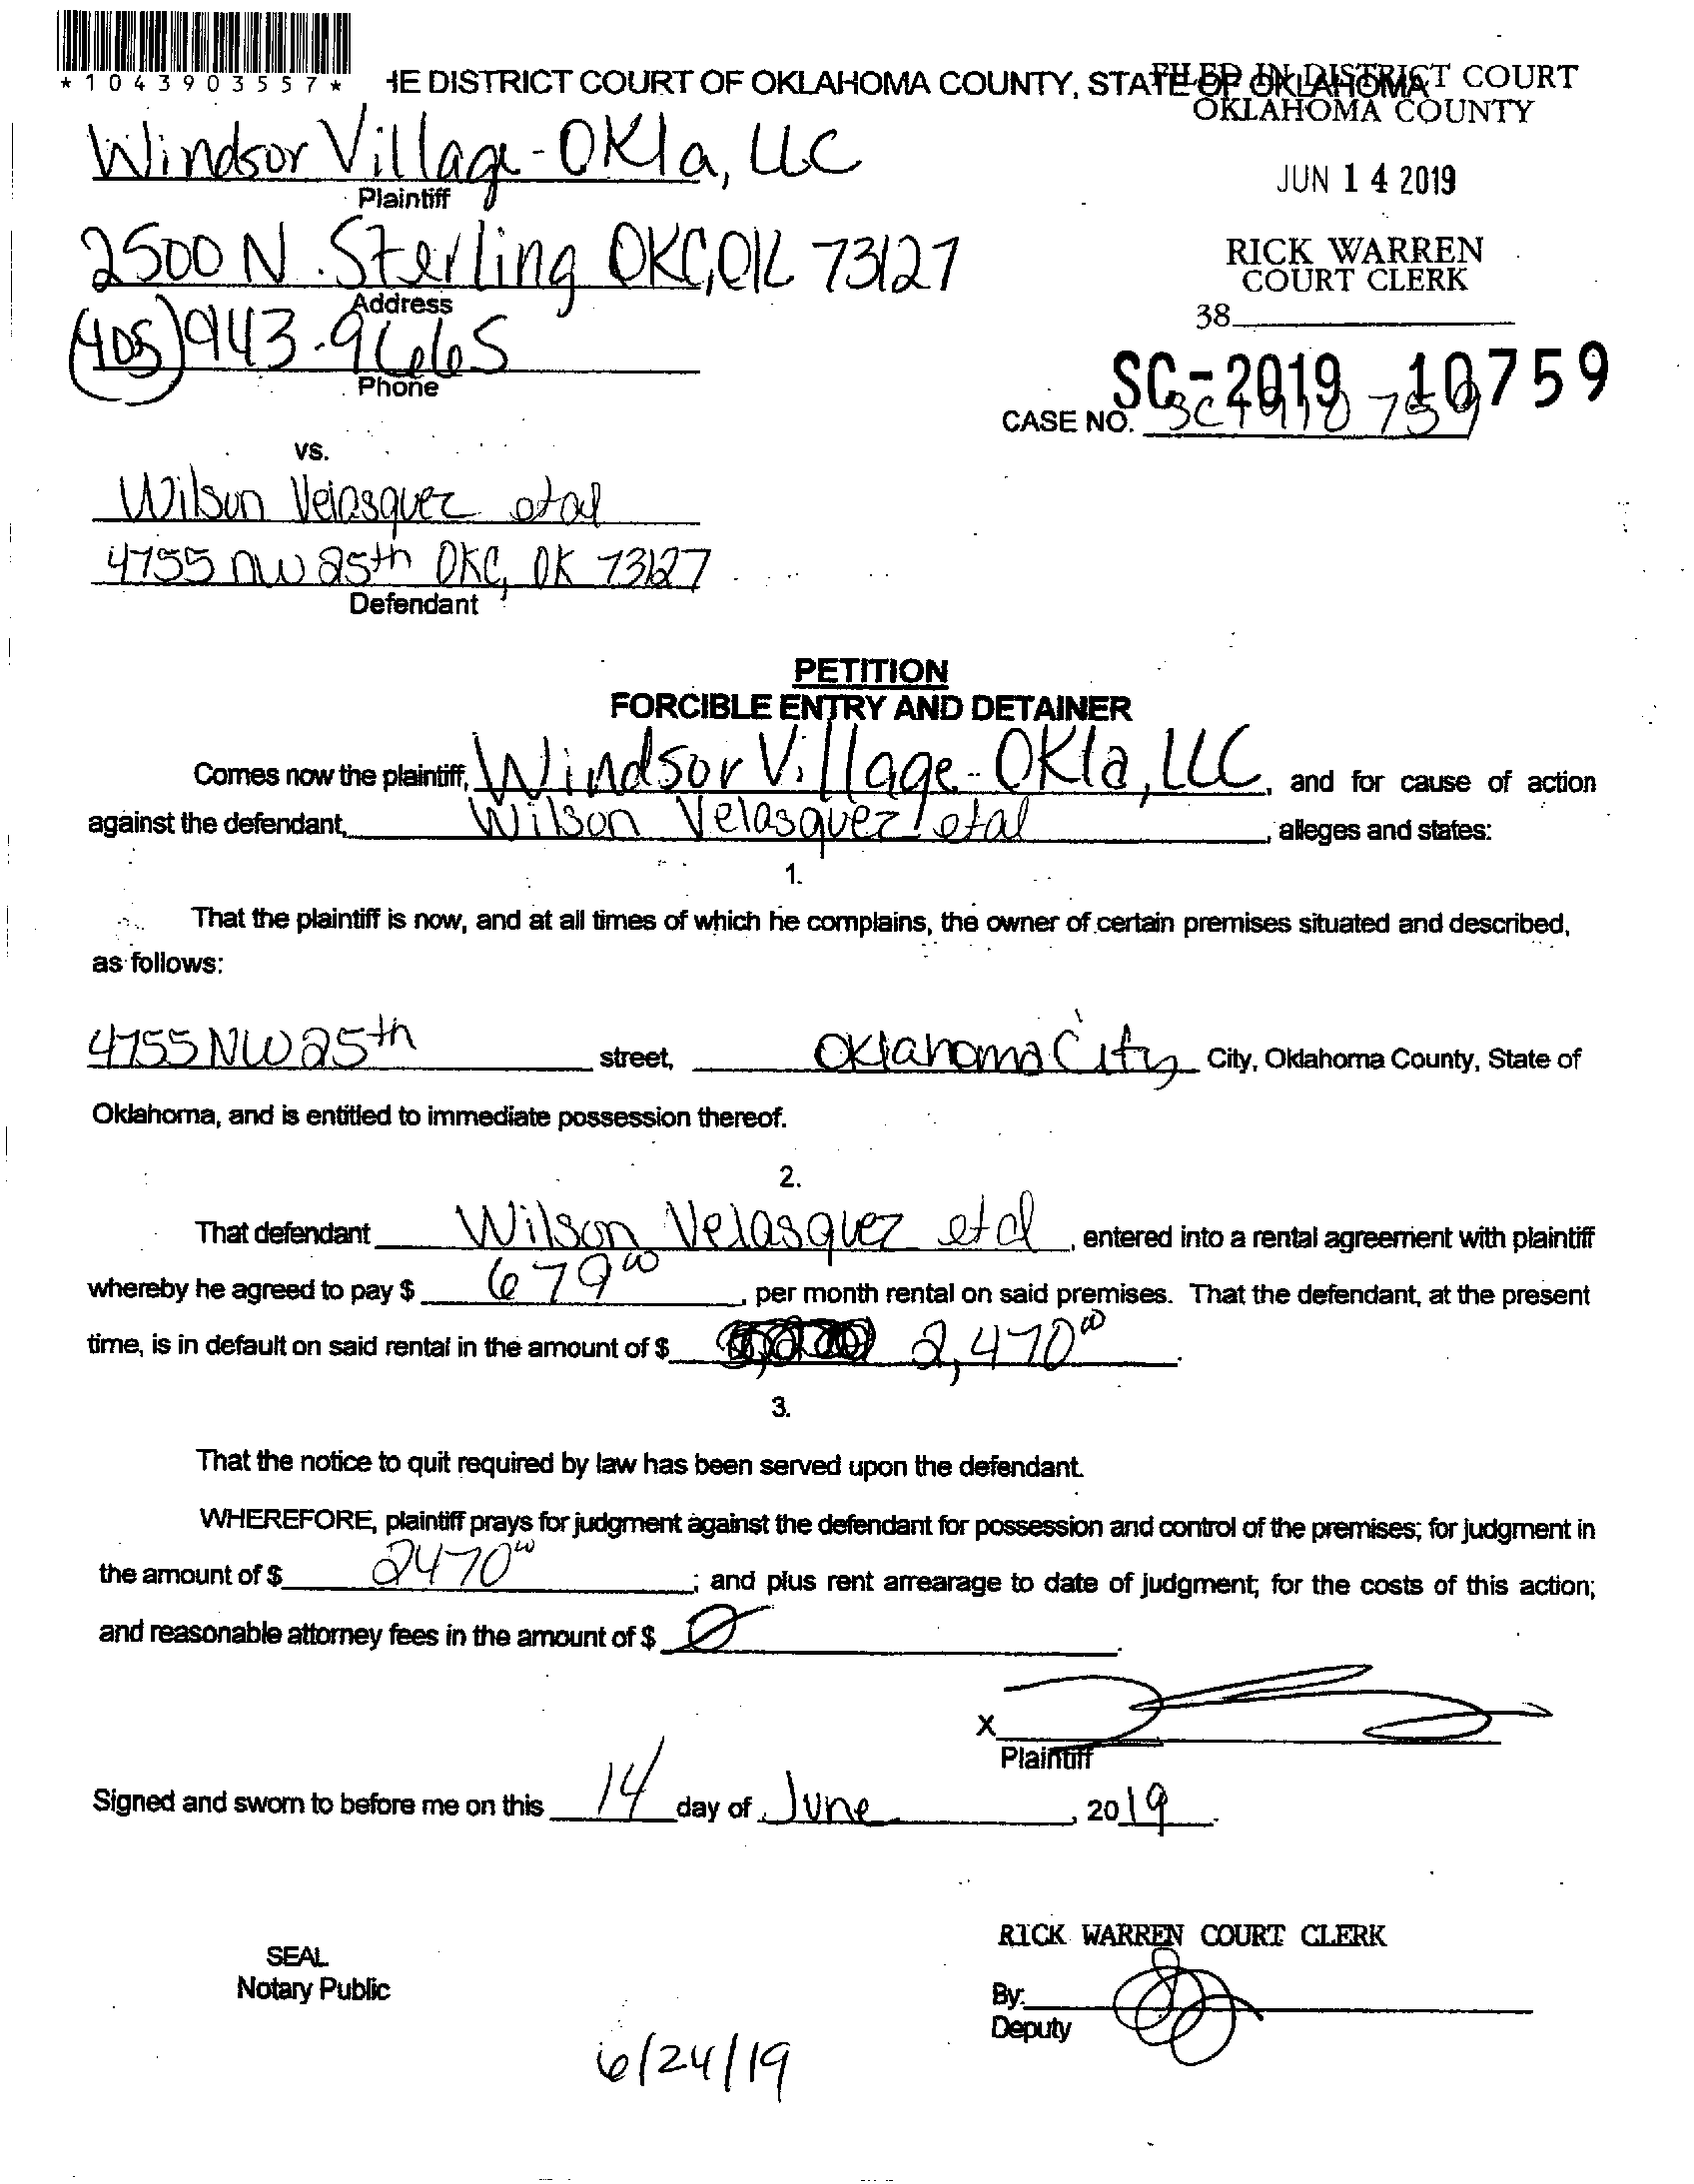 *1043903557*
HE DISTRICT COURT OF OKLAHOMA COUNTY, STATE OF OKLAHOMA
FILED IN DISTRICT COURT
OKLAHOMA COUNTY
Windsor Village-Okla, LLC
Plaintiff
JUN 14 2019
2500 N. Sterling OKC, OK 73127
Address
RICK WARREN
COURT CLERK
38
(405) 943-9665
Phone
SC-2019 10759
CASE NO. SC1910759
vs.
Wilson Velasquez etal
4755 NW 25th OKC, OK 73127
Defendant
PETITION
FORCIBLE ENTRY AND DETAINER
Comes now the plaintiff, Windsor Village-Okla, LLC, and for cause of action
against the defendant, Wilson Velasquez etal, alleges and states:
1.
That the plaintiff is now, and at all times of which he complains, the owner of certain premises situated and described,
as follows:
4755 NW 25th street, Oklahoma City City, Oklahoma County, State of
Oklahoma, and is entitled to immediate possession thereof.
2.
That defendant Wilson Velasquez etal, entered into a rental agreement with plaintiff
whereby he agreed to pay $ 679 00, per month rental on said premises. That the defendant, at the present
time, is in default on said rental in the amount of $ 2,470 00.
3.
That the notice to quit required by law has been served upon the defendant.
WHEREFORE, plaintiff prays for judgment against the defendant for possession and control of the premises; for judgment in
the amount of $ 2470 00; and plus rent arrearage to date of judgment; for the costs of this action;
and reasonable attorney fees in the amount of $ 0.
X
Plaintiff
Signed and sworn to before me on this 14 day of June, 2019.
RICK WARREN COURT CLERK
SEAL
Notary Public
By:
Deputy
6/24/19